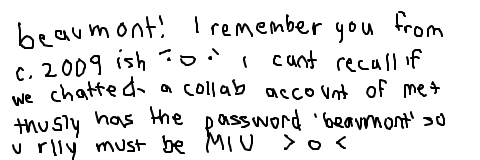 beaumont! I remember you from
c. 2009 ish ∵o∵ i cant recall if
we chatted- a collab account of met
thusly has the password 'beavmont' >o
u rlly must be MIU >o<